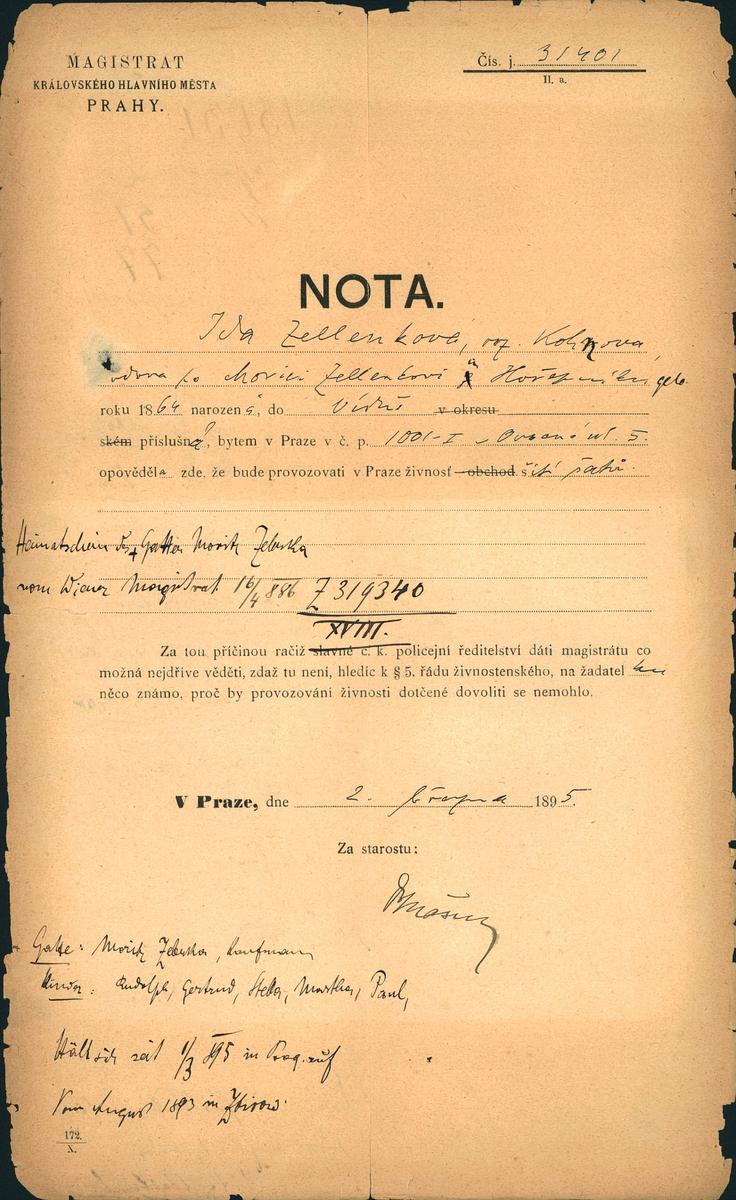 MAGISTRAT
KRÁLOVSKÉHO HLAVNÍHO MĚSTA
PRAHY.
Čís. j. 31401
II. a.
NOTA.
Ida Zellenková, roz. Kohnova,
vdova po Morici Zellenkovi
roku 1864 narozená, do Vídně v okresu
ském příslušná, bytem v Praze v č. p. 1001-I Ovocná ul. 5.
opověděla zde, že bude provozovati v Praze živnost obchod šití šatů.
Heimatschein des + Gatten Moritz Zelenka
vom Wiener Magistrat 16/4 886 Z 319340
XVIII.
Za tou příčinou račiž slavné c. k. policejní ředitelství dáti magistrátu co
možná nejdříve věděti, zdaž tu není, hledíc k § 5. řádu živnostenského, na žadatelku
něco známo, proč by provozování živnosti dotčené dovoliti se nemohlo.
V Praze, dne 2. března 1895.
Za starostu:
Gatte: Moritz Zelenka, Kaufmann
Kinder: Rudolph, Gertrud, Stella, Martha, Paul,
Hält sich seit 1/3 895 in Prag auf
Vom August 1893 in Zbirow.
172.
X.